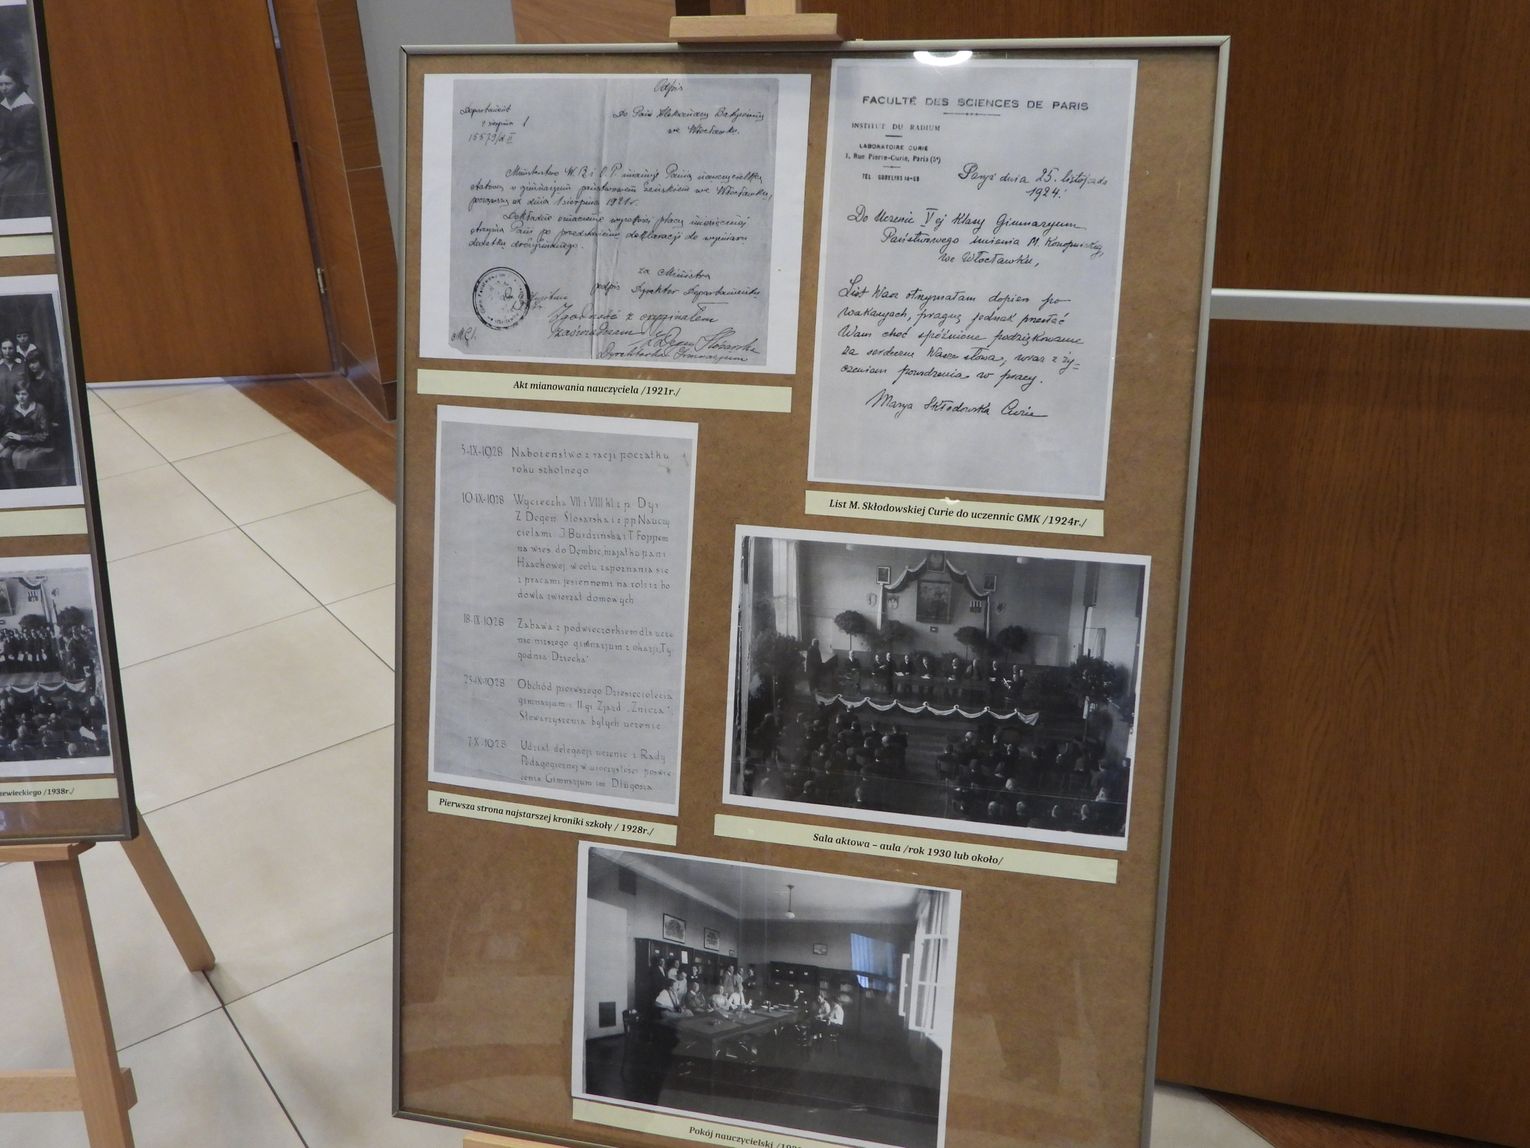 Odpis
Departament
15579/d II
Do Pani Aleksandry
we Włocławku.
Ministerstwo W. R. i O. P. mianuje Panią nauczycielką
etatową w gimnazjum państwowem żeńskiem we Włocławku,
począwszy od dnia 1 sierpnia 1921 r.
Dokładne oznaczenie wysokości płacy miesięcznej
otrzyma Pani po przedstawieniu deklaracji do wymiaru
dodatku drożyźnianego.
za Ministra
podpis Dyrektor Departamentu
Zgodność z oryginałem
zaświadczam
Dyrektorka Gimnazjum
Akt mianowania nauczyciela /1921r./
FACULTÉ DES SCIENCES DE PARIS
INSTITUT DU RADIUM
LABORATOIRE CURIE
1, Rue Pierre-Curie, Paris (5e)
TEL GOBELINS 14-69
Paryż dnia 25. listopada
1924.
Do Uczenic V ej Klasy Gimnazyum
Państwowego imienia M. Konopnickiej
we Włocławku,
List Wasz otrzymałam dopiero po
wakacyach, pragnę jednak przesłać
Wam choć spóźnione podziękowanie
za serdeczne Wasze słowa, wraz z ży-
czeniem powodzenia w pracy.
Marya Skłodowska Curie
List M. Skłodowskiej Curie do uczennic GMK /1924r./
5-IX-1928 Nabożeństwo z racji początku
roku szkolnego
10-IX-1928 Wycieczka VII i VIII kl z p. Dyr
Z. Degen Ślosarską i z pp Nauczy
cielami J Burdzińską i T Foppem
na wieś do Dębic, majątku pani
Haackowej w celu zapoznania się
z pracami jesiennemi na roli z ho
dowlą zwierząt domowych
18-IX-1928 Zabawa z podwieczorkiem dla ucze
nic niższego gimnazjum z okazji „Ty
godnia Dziecka"
23-IX-1928 Obchód pierwszego Dziesięciolecia
gimnazjum i II gi Zjazd „Znicza",
Stowarzyszenia byłych uczenic
7-X-1928 Udział delegacji uczenic z Radą
Pedagogiczną w uroczystości poświę
cenia Gimnazjum im Długosza
Pierwsza strona najstarszej kroniki szkoły / 1928r./
Sala aktowa – aula /rok 1930 lub około/
Pokój nauczycielski
zewieckiego /1938r./